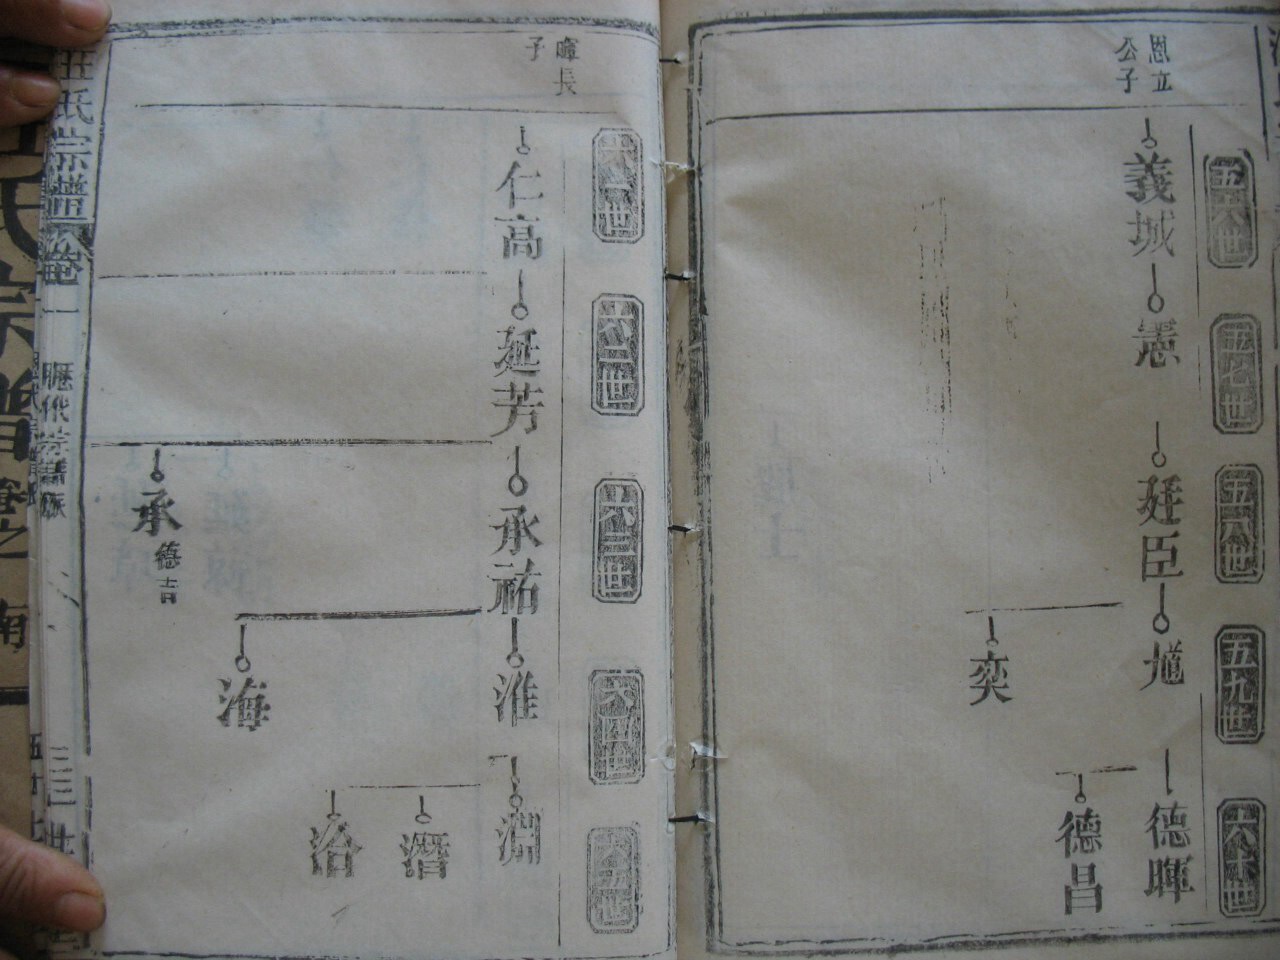 恩立
公子
五六世
五七世
五八世
五九世
六十世
義城
憲
廷臣
尨
德暉
德昌
奕
暉長
子
六一世
六二世
六三世
六四世
六五世
仁高
延芳
承祐
淮
淵
潛
海
洽
承
德吉
汪氏宗譜
卷一
歷代
三三世
氏宗譜卷之
南